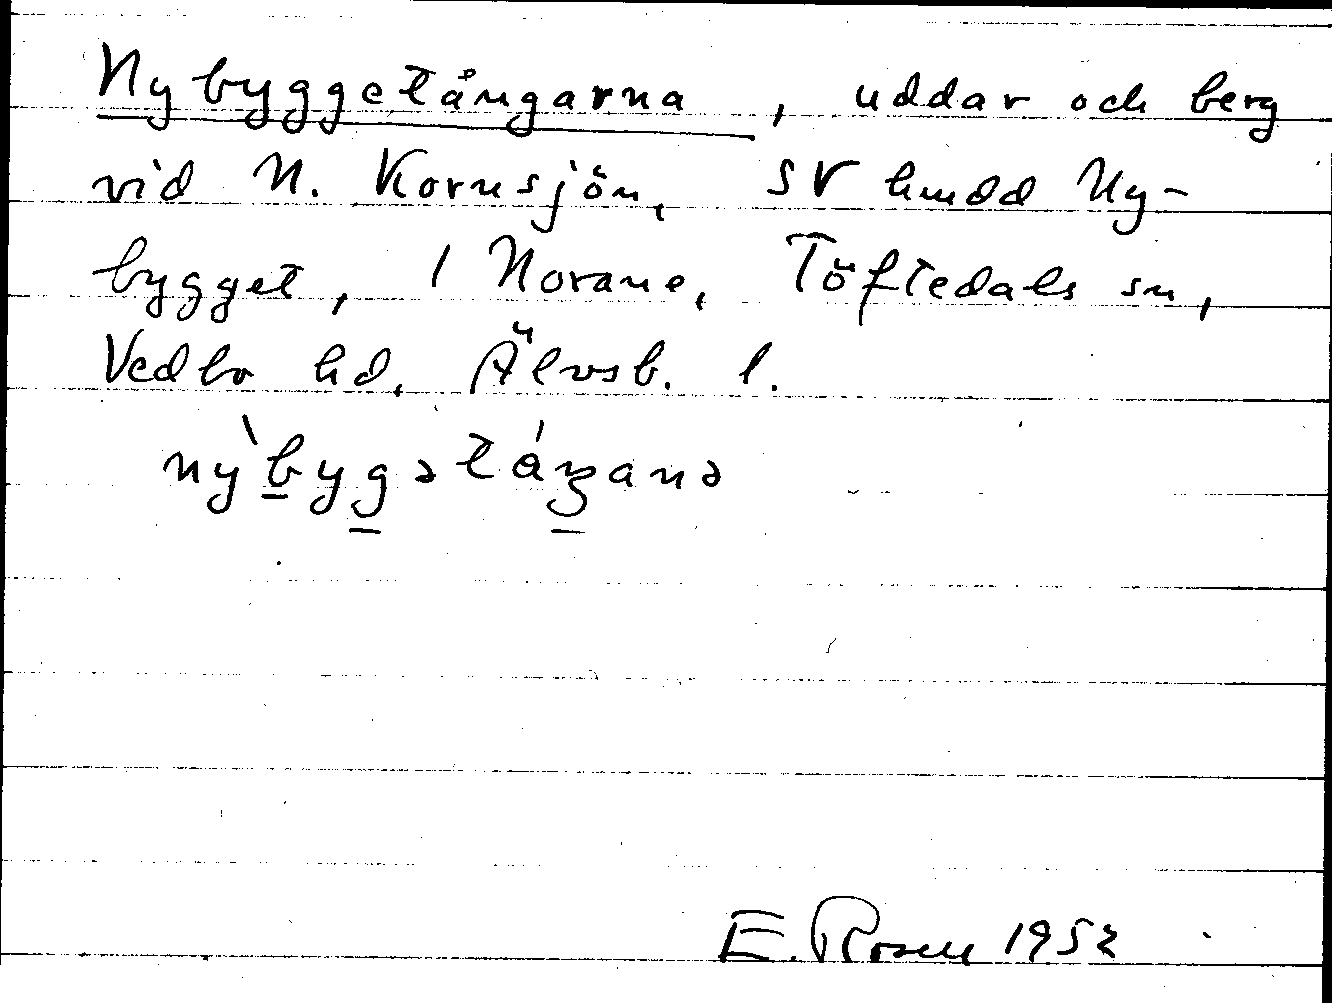 Nybyggetångarna, uddar och berg
vid N. Kornsjön, SV hmdd Ny-
bygget, 1 Norane, Töftedals sn,
Vedbo hd, Älvsb. l.
ny̍bygətáŋana
E. Rosen 1952